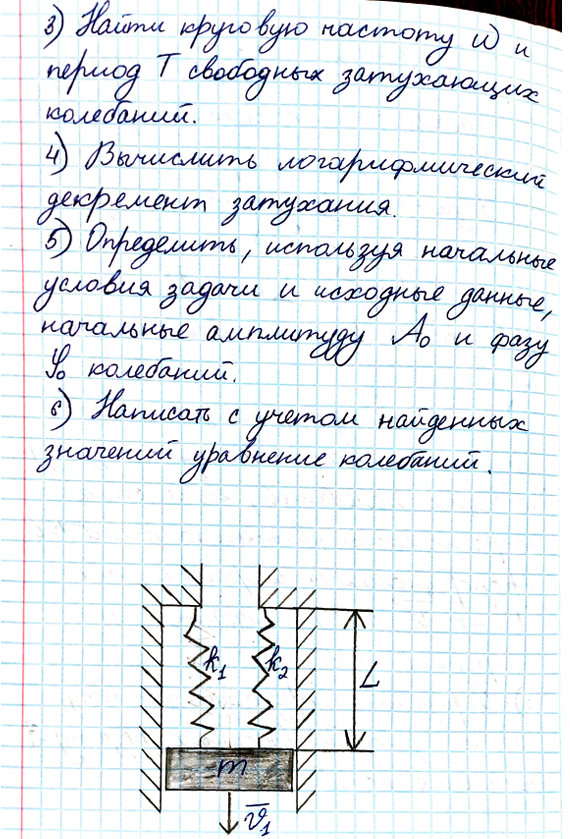 3) Найти круговую частоту ω и
период T свободных затухающих
колебаний.
4) Вычислить логарифмический
декремент затухания.
5) Определить, используя начальные
условия задачи и исходные данные,
начальные амплитуду A₀ и фазу
φ₀ колебаний.
6) Написать с учетом найденных
значений уравнение колебаний.
k₁ k₂ L
m
v̅₁